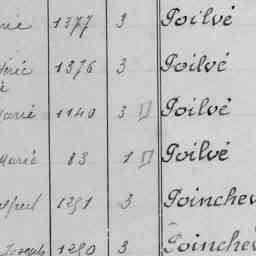 rie 1377 3 Poilvé
éric 1376 3 Poilvé
Marie 1140 3 Poilvé
Marie 83 1 Poilvé
elfred 1291 3 Poinchev
Joseph 1290 3 Poinchev